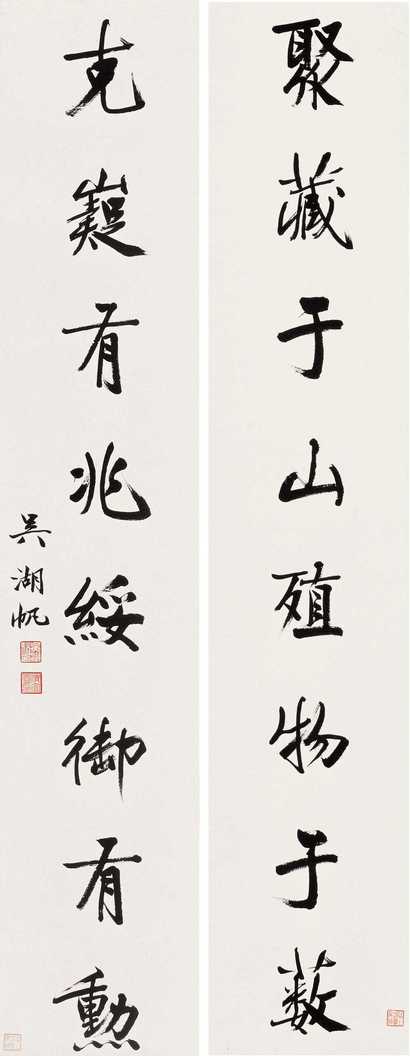 聚藏于山殖物于薮
克嶷有兆綏御有勳
吳湖帆